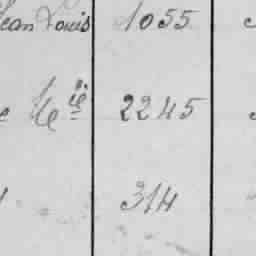 Jean Louis 1055
2245
314